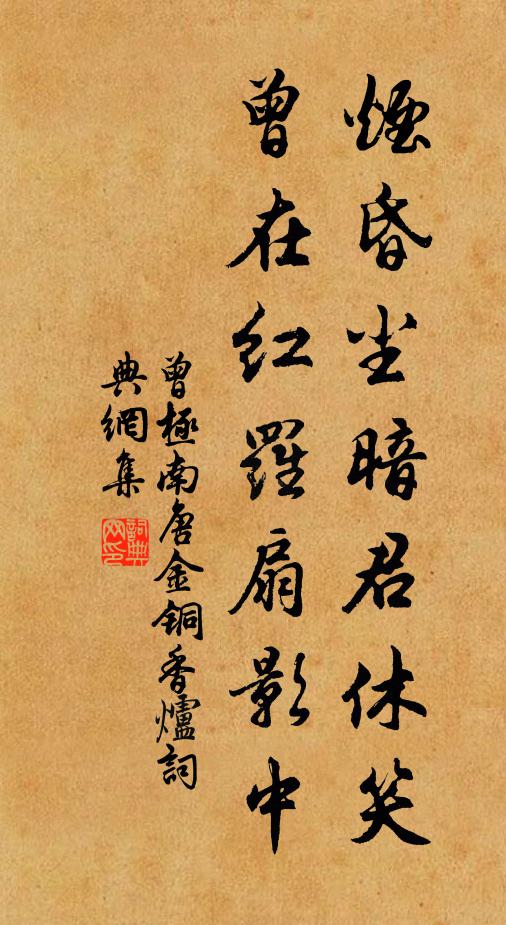 煙昏尘暗君休笑
曾在红羅扇影中
曾極南唐金铜香爐詞
典網集
詞典网印